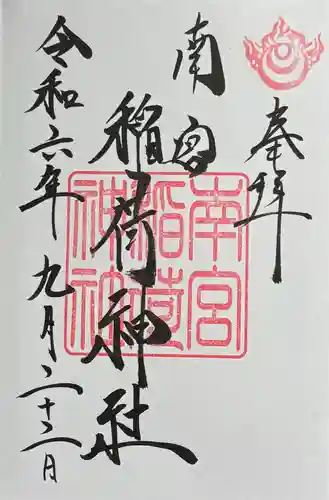 奉拝
南宮
稲荷神社
南宮
稲荷
神社
令和六年九月二十二日